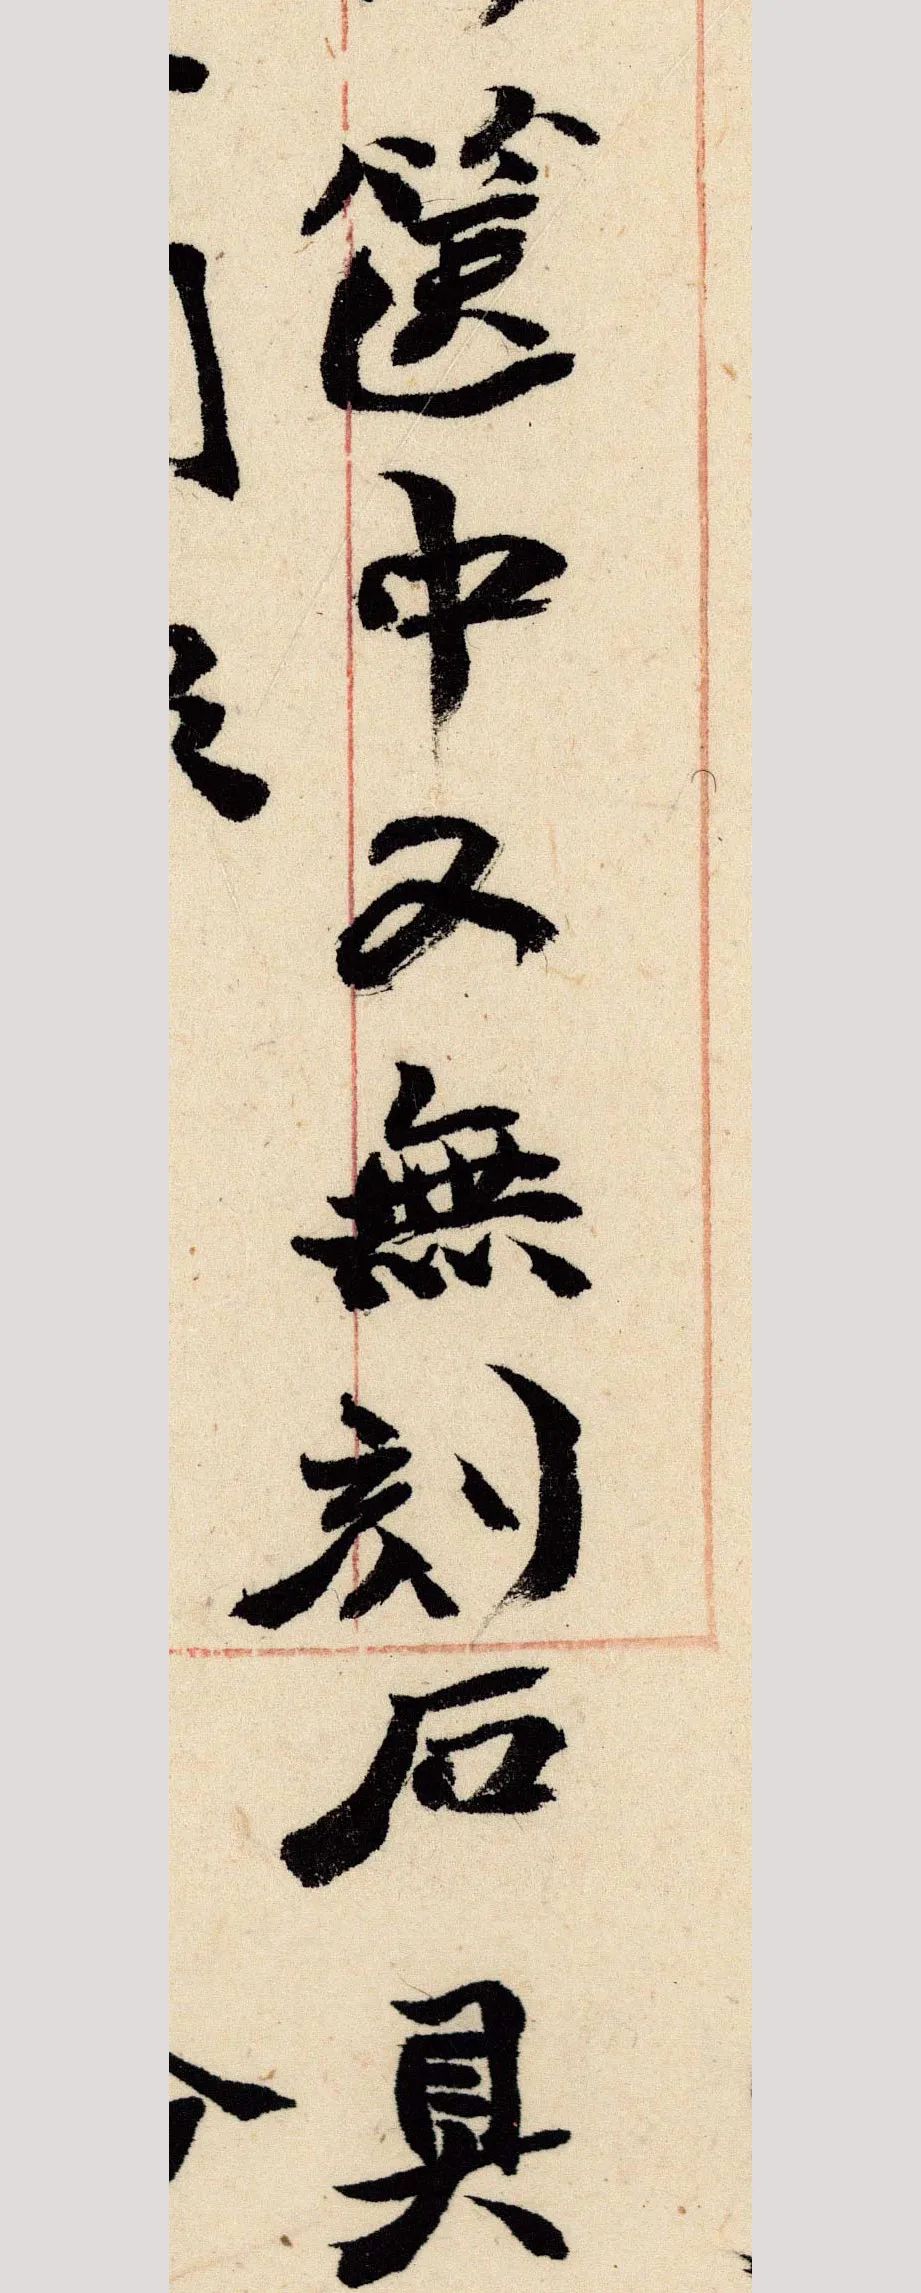 篋中又無刻石具